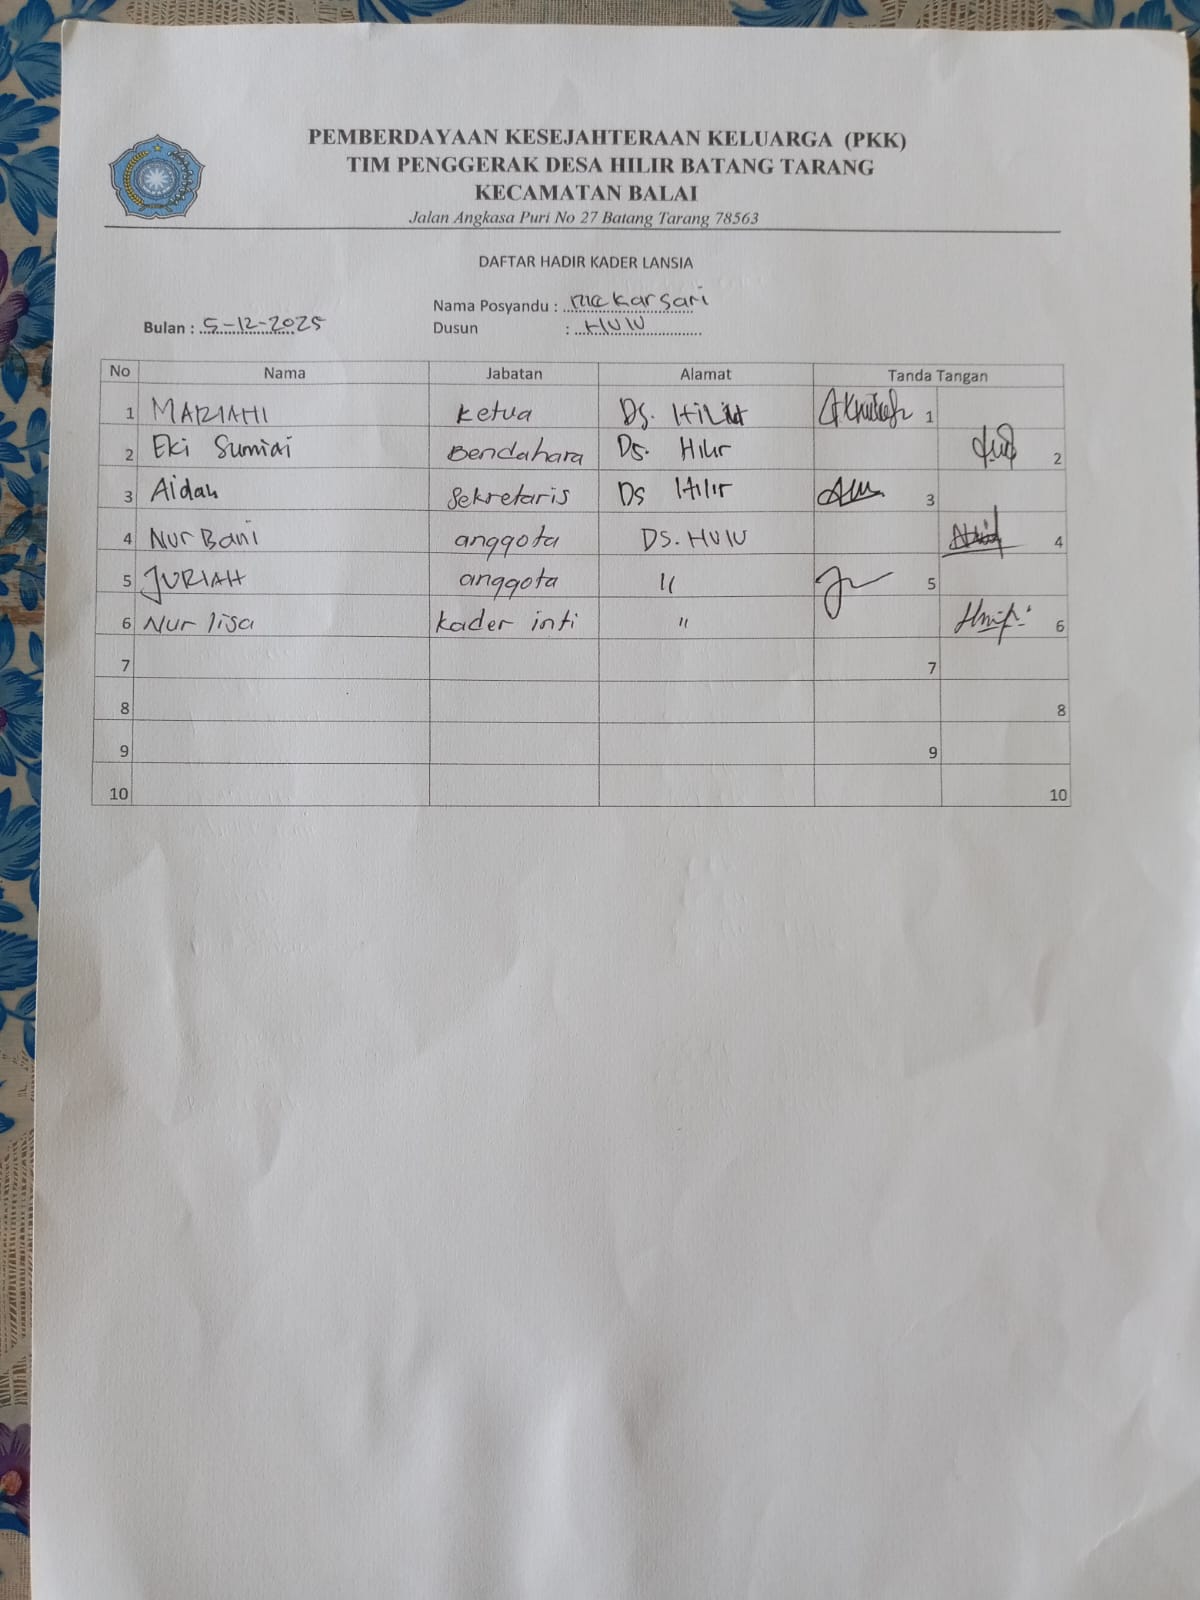 PEMBERDAYAAN KESEJAHTERAAN KELUARGA (PKK)
TIM PENGGERAK DESA HILIR BATANG TARANG
KECAMATAN BALAI
Jalan Angkasa Puri No 27 Batang Tarang 78563
DAFTAR HADIR KADER LANSIA
Nama Posyandu : Mekarsari
Bulan : 5-12-2025
Dusun : HULU
No Nama Jabatan Alamat Tanda Tangan
1 MARIAHI Ketua Ds. HILIR 1
2 Eki Sumiai Bendahara Ds. Hilir 2
3 Aidah Sekretaris Ds Hilir 3
4 Nur Bani anggota DS. HULU 4
5 JURIAH anggota " 5
6 Nur lisa kader inti " 6
7 7
8 8
9 9
10 10